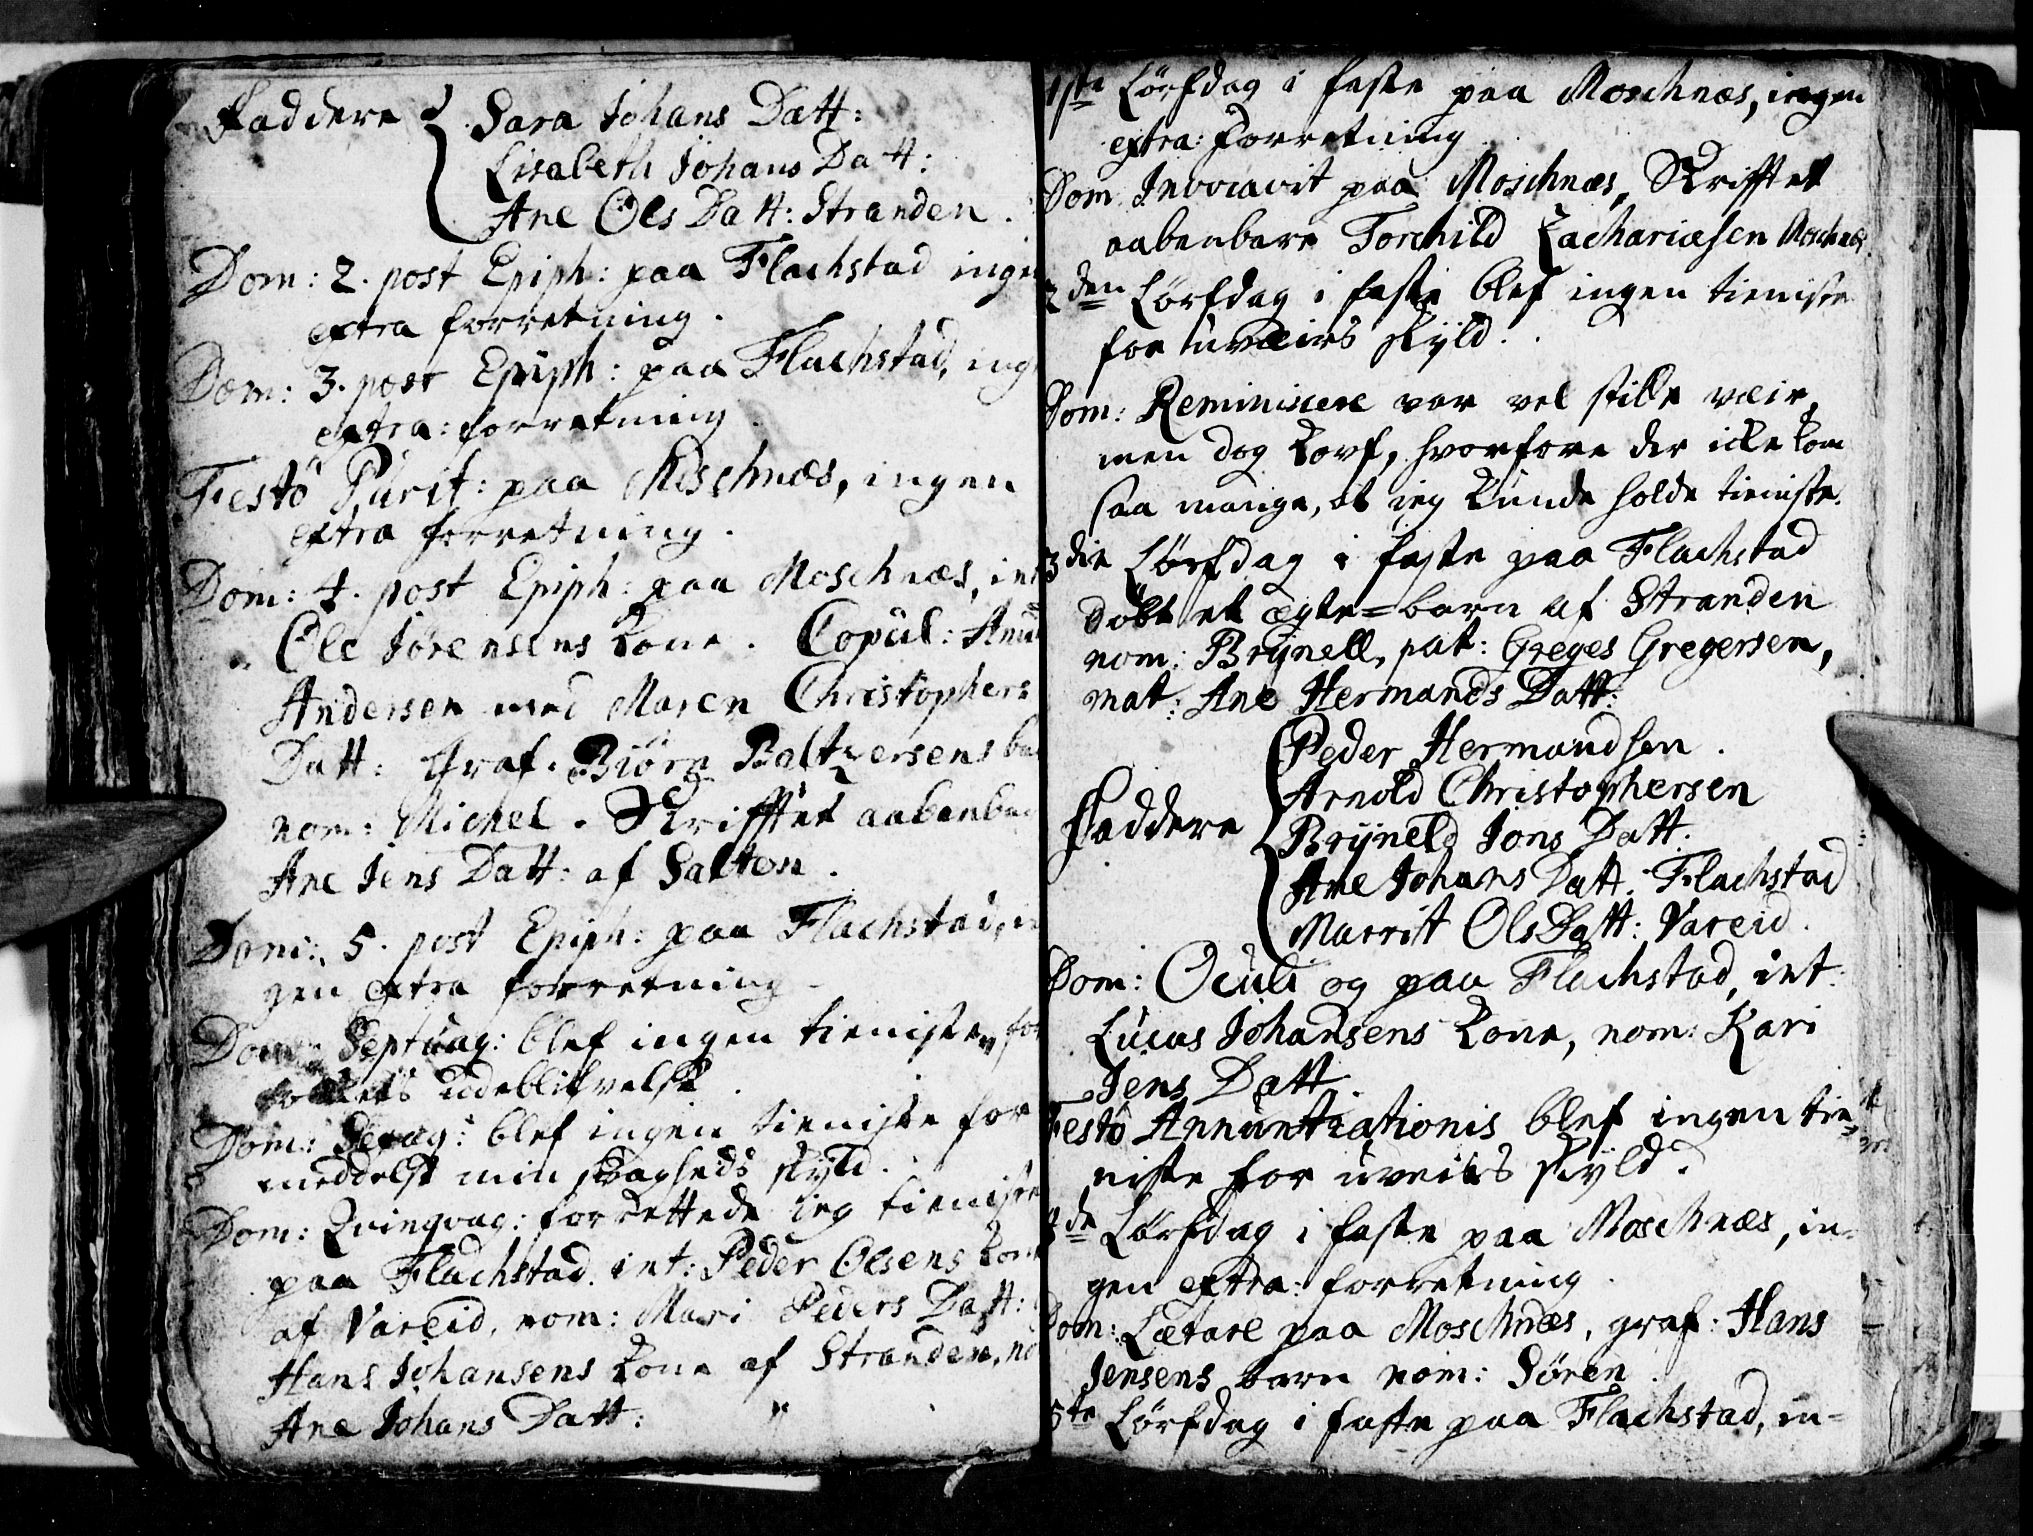 Faddere { Sara Johans Datt:
Lisabeth Johans Datt:
Ane Ols Datt: Stranden.
Dom: 2. post Epiph: paa Flachstad ingen
extra forretning.
Dom: 3. post Epiph: paa Flachstad, ing
extra: forretning.
Festo Purif: paa Moschnæs, ingen
extra forretning.
Dom: 4. post Epiph: paa Moschnæs, int
Ole Jørensens Kone. Copul:
Andersen med Maren Christophers
Datt: Graf. Biørn Baltzersens ba
nom: Michel. Skrifftet aabenba
Ane Jens Datt: af Salten.
Dom: 5. post Epiph: paa Flachstad, in
gen extra forretning.
Dom: Septuag: blef ingen tieniste, for
folkets udeblifvelse.
Dom: Sexag: blef ingen tieniste for
meddelst min svagheds skyld.
Dom: Qvinqvag: forrettede ieg tieniste
paa Flachstad. int: Peder Olsens Kone
af Vareid, nom: Mari Peders Datt:
Hans Johansens Kone af Stranden, no
Ane Johans Datt:
1ste Lørsdag i faste paa Moschnæs, ingen
extra: forretning.
Dom Invocavit paa Moschnæs, Skrifftet
aabenbare Torchild Zachariæsen Moschnæs.
2den Lørsdag i faste blef ingen tieniste
for uveirs skyld.
Dom: Reminiscere var vel stille veir,
men dog Kovf, hvorfore der icke kom
saa mange, at jeg kunde holde tieniste.
3die Lørsdag i faste paa Flachstad
døbt et ægte=barn af Stranden
nom: Brynell, pat: Greges Gregersen,
mat: Ane Hermands Datt:
Faddere { Peder Hermandsen.
Arnold Christophersen
Bryneld Jons Datt.
Ane Johans Datt. Flachstad
Marrit Ols Datt: Vareid.
Dom: Oculi og paa Flachstad, int:
Lucas Johansens Kone, nom: Kari
Jens Datt.
Festo Annuntiationis blef ingen tie=
niste for uveirs skyld.
4de Lørsdag i faste paa Moschnæs, in=
gen extra: forretning.
Dom: Lætare paa Moschnæs, graf: Hans
Jensens barn nom: Søren.
5te Lørsdag i faste paa Flachstad, in=